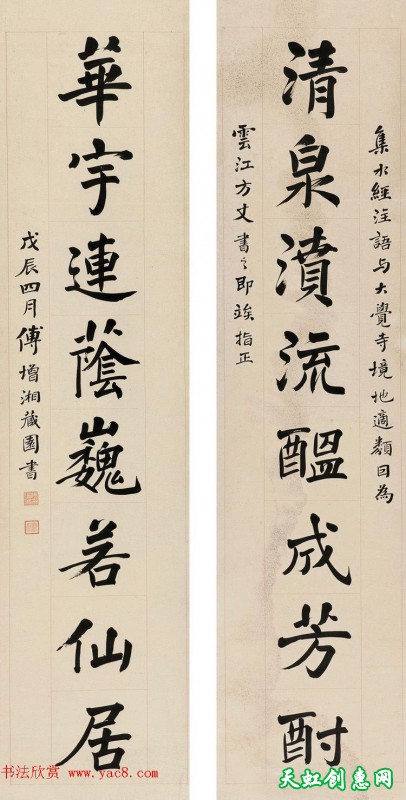 集水經注語与大覺寺境地適類囙為
清泉濆流醞成芳酎
雲江方丈書之即竢指正
華宇連蔭巍若仙居
戊辰四月傅增湘藏園書
书法欣赏 www.yac8.com
天虹创惠网